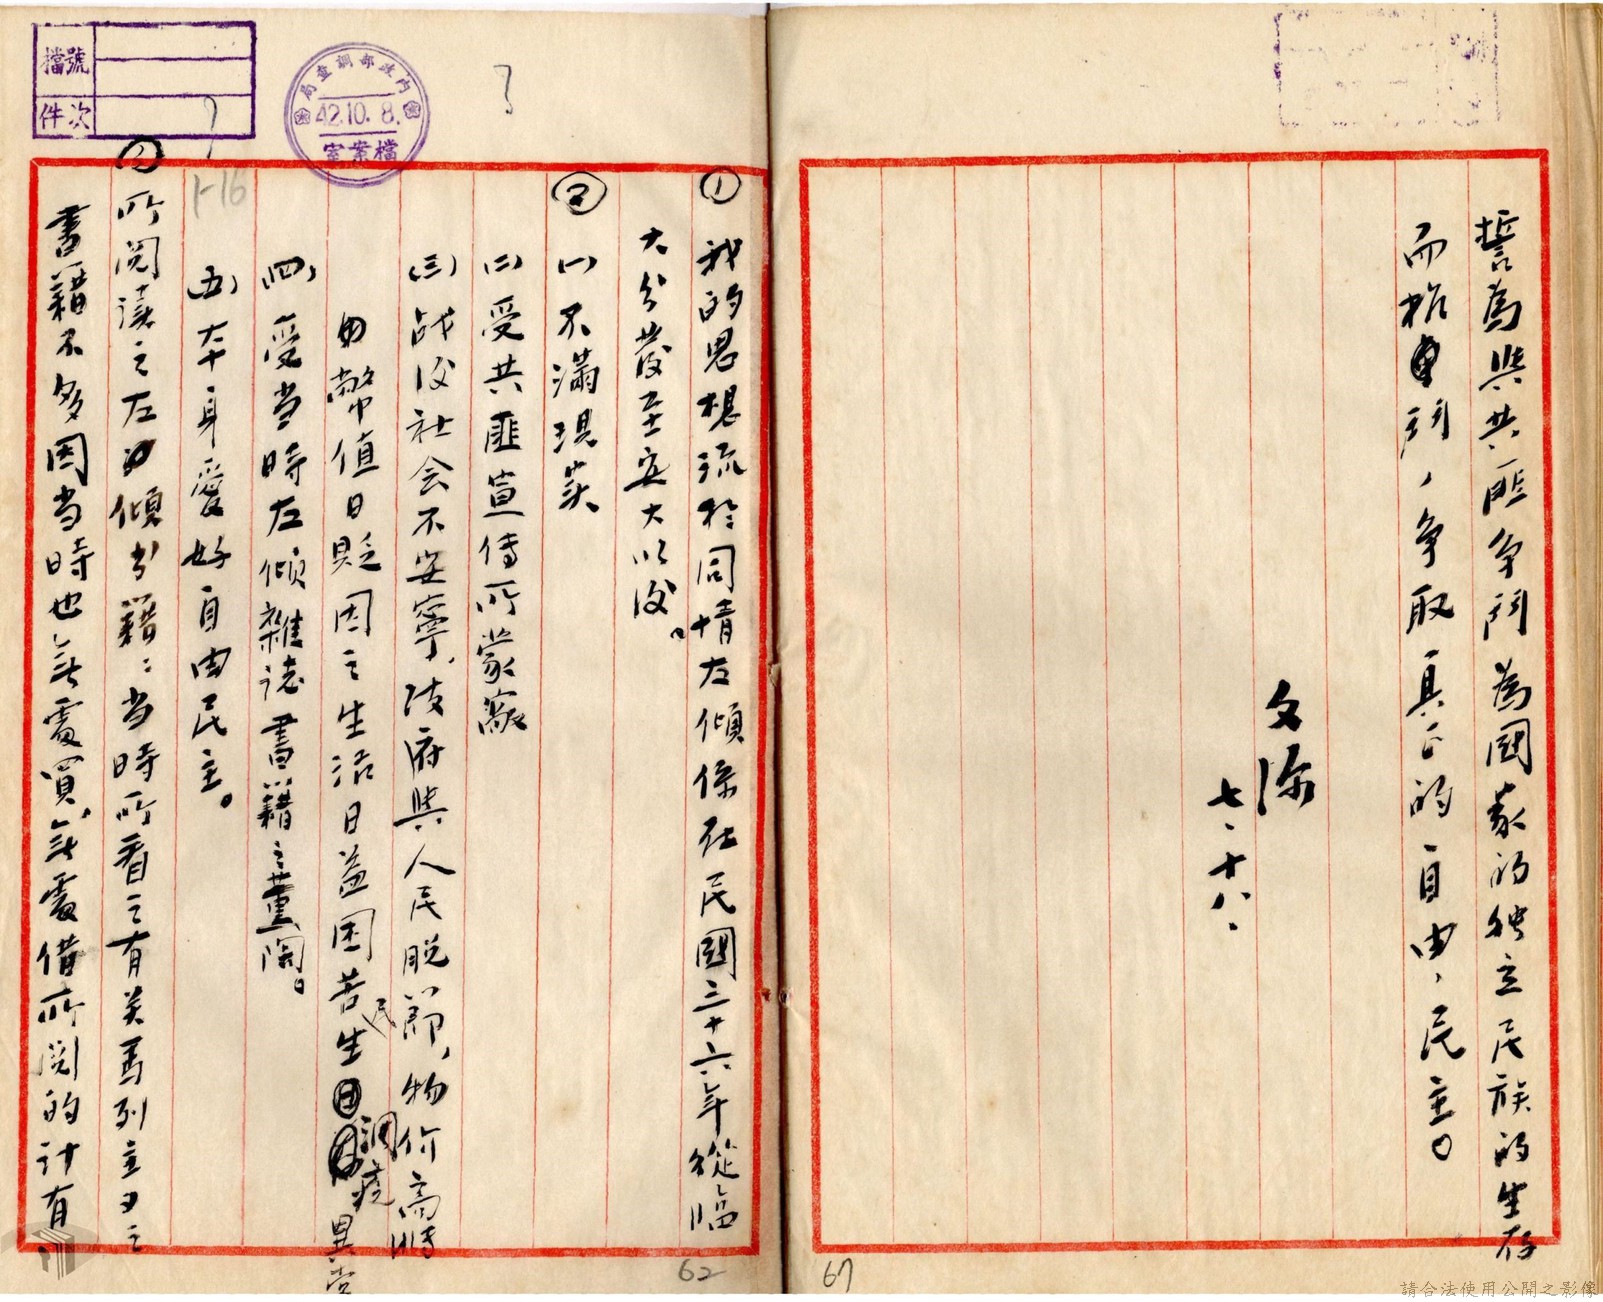 誓為與共匪爭鬥為國家的独立民族的生存
而抗鬥，爭取真正的自由，民主。
文
七、十八、
檔號
件次
內政部調查局
42.10.8.
檔案室
1-16
① 我的思想流於同情左傾係在民國三十六年從臨
大分發至安大以後。
②
(一)不滿現实
(二)受共匪宣传所蒙蔽
(三)战後社会不安寧，政府與人民脱節，物价高漲
幣值日貶因之生活日益困苦生民凋疲異常
(四)受当時左傾雜誌書籍之薰陶。
(五)本身愛好自由民主。
② 所閱读之左傾書籍：当時所看之有关馬列主义之
書籍不多因当時也無處買，無處借所閱的计有
62
67
請合法使用公開之影像